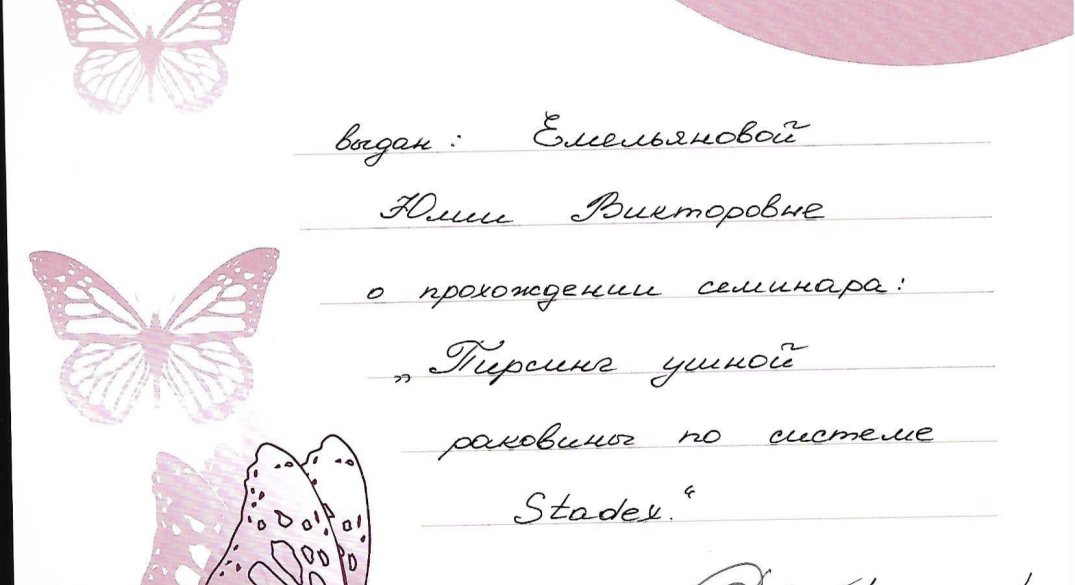 выдан: Емельяновой
Юлии Викторовне
о прохождении семинара:
„Пирсинг ушной
раковины по системе
Stadex.“